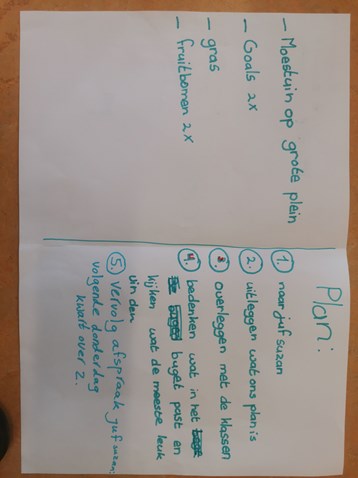 - Moestuin op grote plein
- Goals 2x
- gras
- fruitbomen 2x
Plan:
1. naar juf suzan
2. uitleggen wat ons plan is
3. overleggen met de klassen
4. bedenken wat in het
buget past en
kijken wat de meeste leuk
vinden
5. vervolg afspraak juf suzan:
volgende donderdag
kwart over 2.